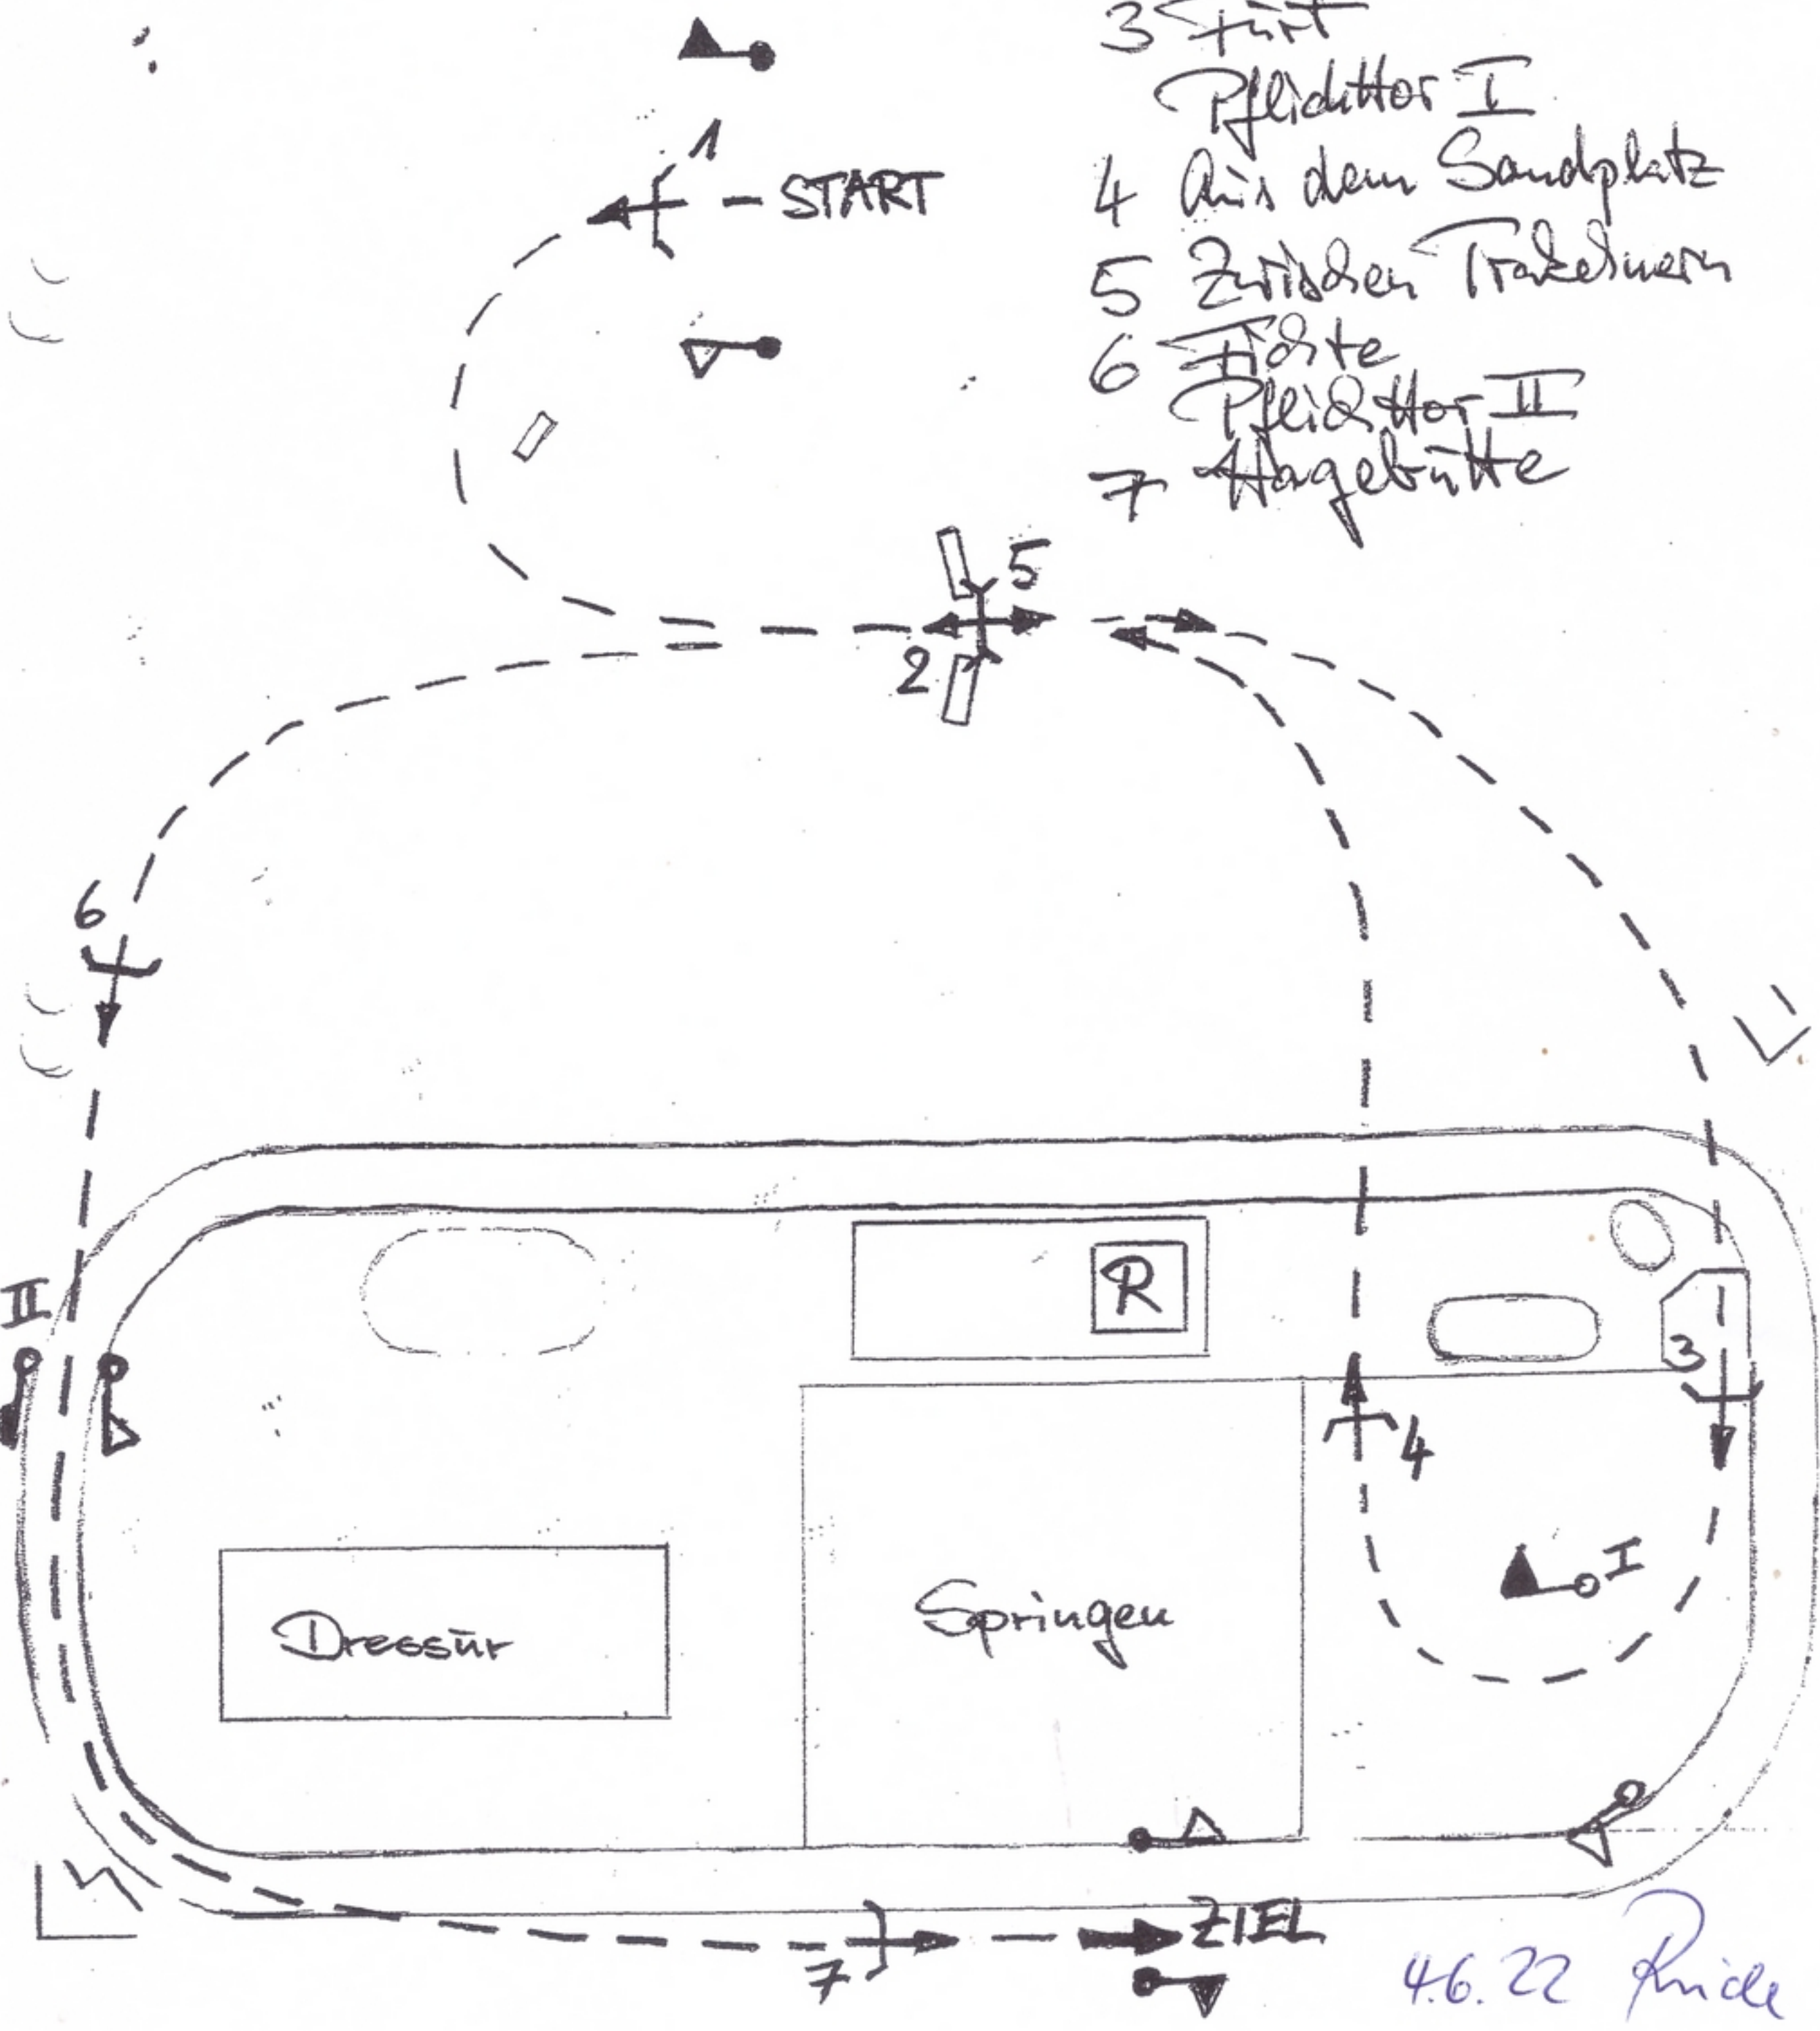 3 Furt
Pflichttor I
4 Aus dem Sandplatz
5 Zwischen Trakehnern
6 Fichte
Pflichttor II
7 Hagebutte
1
START
5
2
6
II
R
3
4
I
Dressur
Springen
ZIEL
7
4.6.22